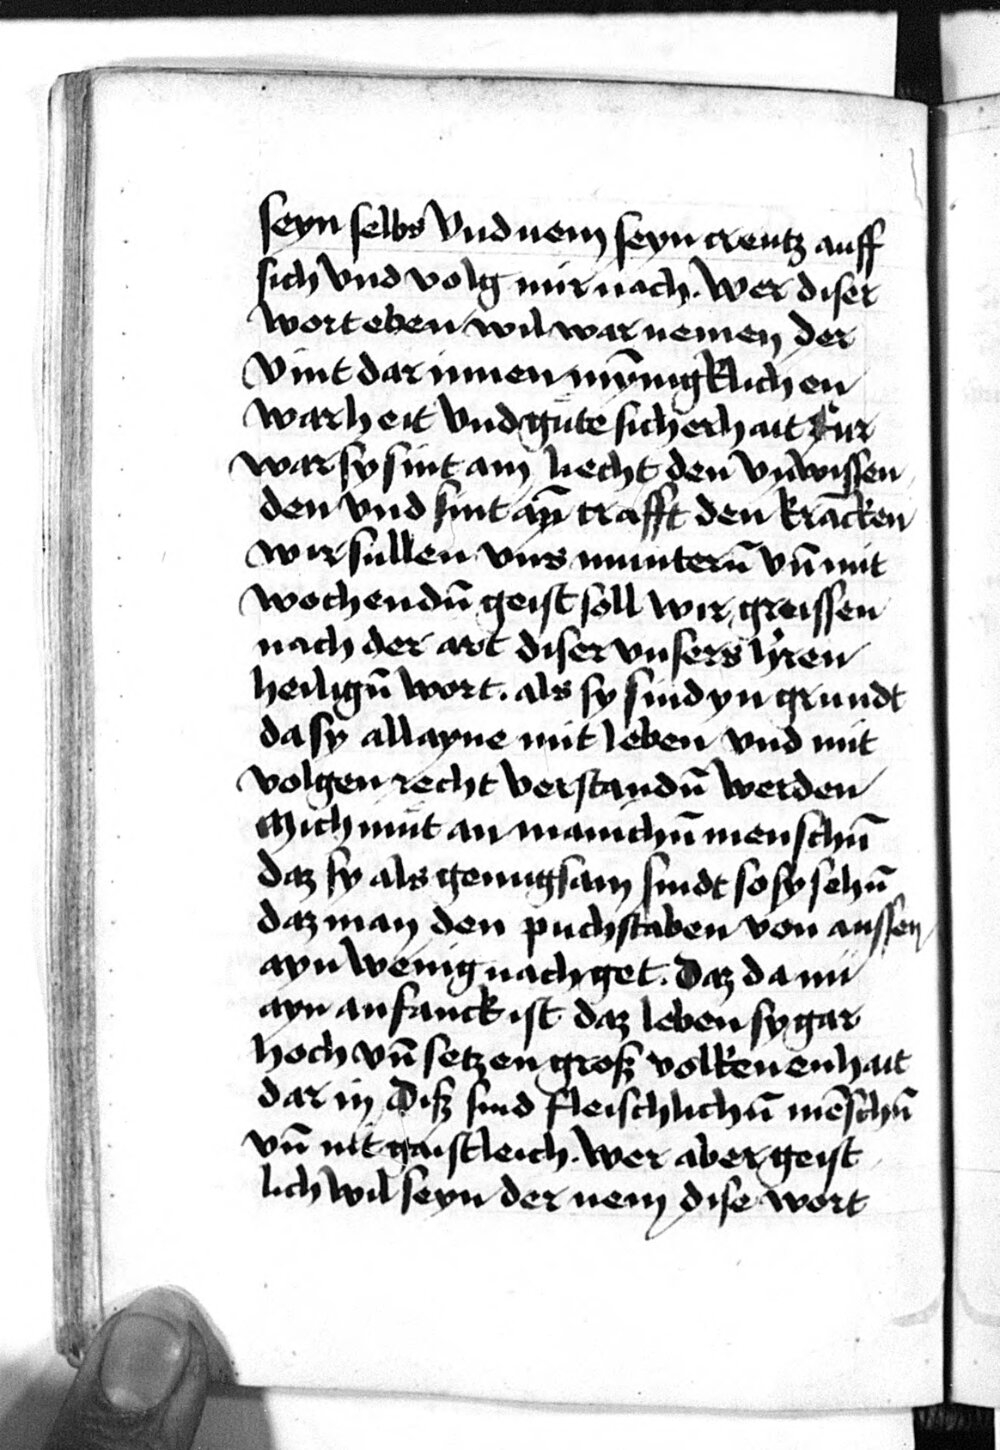 seyn selbs Vnd nem seyn creutz auff
sich Vnd volg mir nach. Wer diser
wort eben wil war nemen der
Vint dar innen mynigklichen
warheit Vnd gute sicherhait Fur
war sy sint ain liecht den vnwissen
den vnd sint ayn crafft den krācken
wir sullen vns munterū vn̄ mit
wochendū geist soll wir greissen
nach der art diser vnsers hˀren
heiligū wort. als sy sind yn grundt
da sy allayne mit leben vnd mit
volgen recht verstandū werden
Mich müt an manichū menschū
daz sy als genugsam sindt so sy sehū
daz man den puchstaben von aussen
ayn wenig nach get. Daz da nü
ayn anfanck ist daz leben sy gar
hoch vn̄ setzen groß volkenenhait
dar in Diß sind fleischlichū mēschū
vn̄ nit gaistleich. Wer aber geist
lich wil seyn der nem dise wort